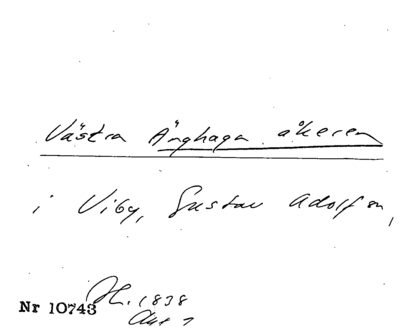 Västra Änghaga åkeren
i Viby, Gustav Adolf sn,
Nr 10743 H. 1838
Akt 7